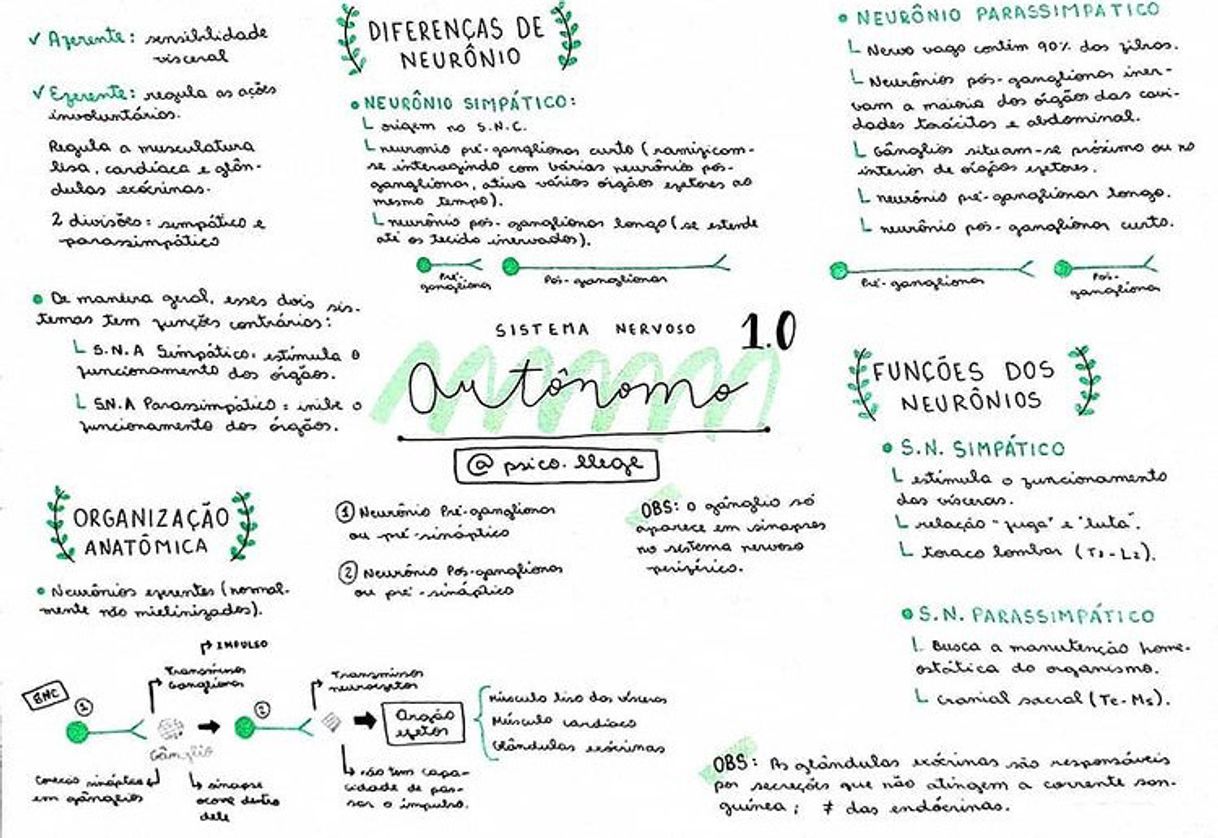 ✓ Aferente: sensibilidade
visceral
✓ Eferente: regula as ações
involuntários.
Regula a musculatura
lisa, cardíaca e glân-
dulas exócrinas.
2 divisões: simpático e
parassimpático
• De maneira geral, esses dois sis-
temas tem funções contrários:
L S.N.A Simpático: estimula o
funcionamento dos órgãos.
L S.N.A Parassimpático: inibe o
funcionamento dos órgãos.
DIFERENÇAS DE
NEURÔNIO
• NEURÔNIO SIMPÁTICO:
L origem no S.N.C.
L neuronio pré-ganglionar curto (ramificam-
se interagindo com várias neurônio pós-
ganglionar, ativa vários órgãos efetores ao
mesmo tempo).
L neurônio pós-ganglionar longo (se estende
até os tecido inervados).
Pré-
ganglionar
Pós-ganglionar
• NEURÔNIO PARASSIMPATICO
L Nervo vago contém 90% das fibras.
L Neurônios pós-ganglionar iner-
vam a maioria dos órgãos das cavi-
dades torácitas e abdominal.
L Gânglios situam-se próximo ou no
interior de órgãos efetores.
L neurônio pré-ganglionar longo.
L neurônio pós-ganglionar curto.
Pré-ganglionar
Pós-
ganglionar
SISTEMA NERVOSO 1.0
Autônomo
@psico.llege
ORGANIZAÇÃO
ANATÔMICA
• Neurônios eferentes (normal-
mente não mielinizados).
① Neurônio Pré-ganglionar
ou pré-sináptico
② Neurônio Pós-ganglionar
ou pré-sináptico
OBS: o gânglio só
aparece em sinapses
no sistema nervoso
periférico.
IMPULSO
Transmissor
Ganglionar
Transmissor
neuroefetor
SNC
①
②
Gânglio
Órgão
efetor
Músculo liso das vísceras
Músculo cardíaco
Glândulas exócrinas
Conexão sináptica
em gânglios
sinapse
ocorre dentro
dele
não tem capa-
cidade de pas-
sar o impulso.
FUNÇÕES DOS
NEURÔNIOS
• S.N. SIMPÁTICO
L estimula o funcionamento
das vísceras.
L relação "fuga" e "luta".
L toraco lombar (T1-L2).
• S.N. PARASSIMPÁTICO
L Busca a manutenção home-
ostática do organismo.
L cranial sacral (Tc-Ms).
OBS: As glândulas exócrinas são responsáveis
por secreções que não atingem a corrente san-
guínea; ≠ das endócrinas.